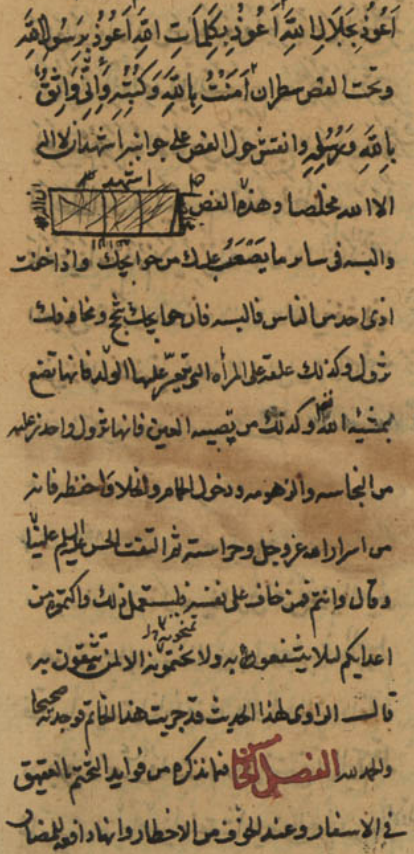 اَعُوذُ بِجَلَالِ اللّهِ اَعُوذُ بِكَلِمَاتِ اللّهِ اَعُوذُ بِرَسُولِ اللّهِ
وتحت الفص سطران آمَنْتُ بِاللّهِ وَكُتُبِهِ وَاِنِّي وَاثِقٌ
بِاللّهِ وَرُسُلِهِ وانقش حول الفص على جوانبه اشهد ان لا اله
الا الله مخلصا وهذه الفص
اشهد
والبسه في ساير ما يَصْعُبُ عليك من حوايجك واذا خفت
اذى احد من الناس فالبسه فان حوايجك تنجح ومخاوفك
تزول وكذلك علقه على المراه التي يتعسر عليها الولد فانها تضع
بمشيه الله وكذلك من تصيبه العين فانها تزول واحذر عليه
من النجاسه والزهومه ودخول الحمام والخلا واحفظه فانه
من اسرار الله عز وجل وحراسته ثم التفت الحسن عليه السلم علينا
وقال وانتم فمن خاف على نفسه فليستعمل ذلك واكتموه من
اعدايكم ليلا ينتفعون به ولا الا لمن تثقون به
قال الراوى لهذا الحديث قد جربت هذا الخاتم فوجدته صحيحا
والحمد لله الفصل فيما نذكره من فوايد التختم بالعقيق
في الاسفار وعند الخوف من الاخطار وانها دافعه للمضار